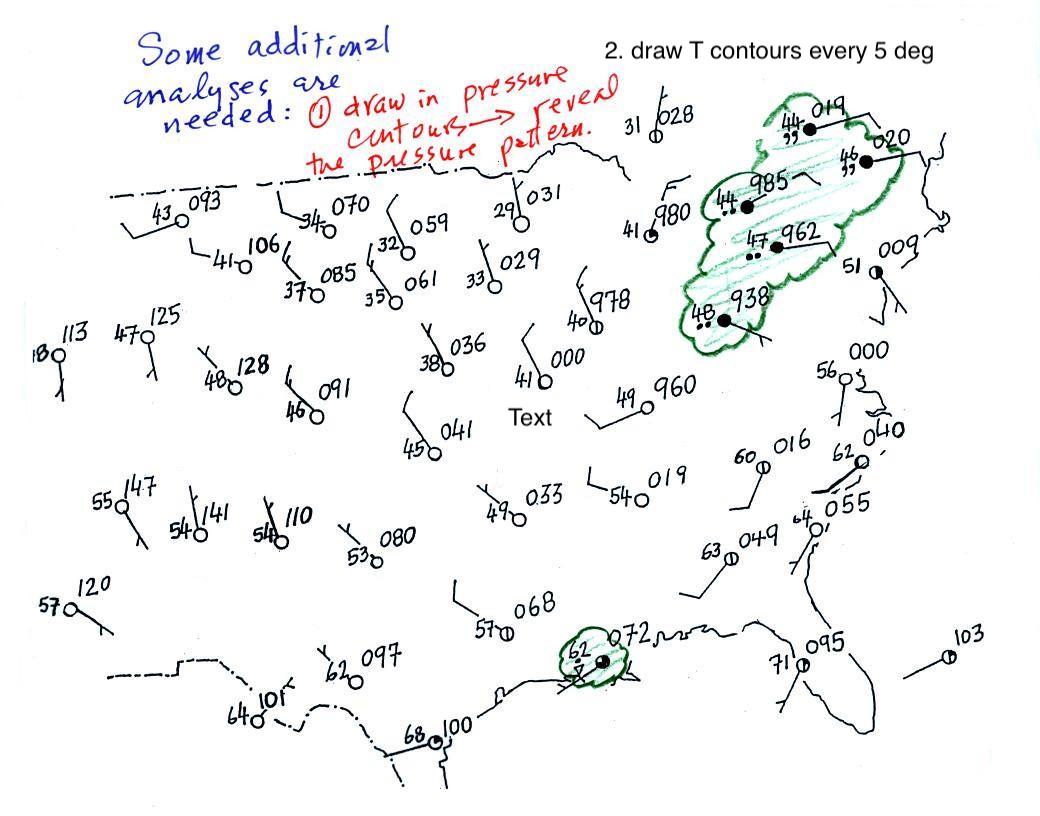 Some additional
analyses are
needed: ① draw in pressure
contours → reveal
the pressure pattern.
2. draw T contours every 5 deg
31 028
44 019
46 020
44 985
43 093
34 070
32 059
29 031
41 980
47 962
51 009
41 106
37 085
35 061
33 029
40 978
48 938
18 113
47 125
48 128
46 091
38 036
41 000
49 960
56 000
45 041
Text
60 016
62 040
55 147
54 141
54 110
53 080
49 033
54 019
63 049
64 055
57 120
57 068
62 072
62 097
71 095
103
64 101
68 100